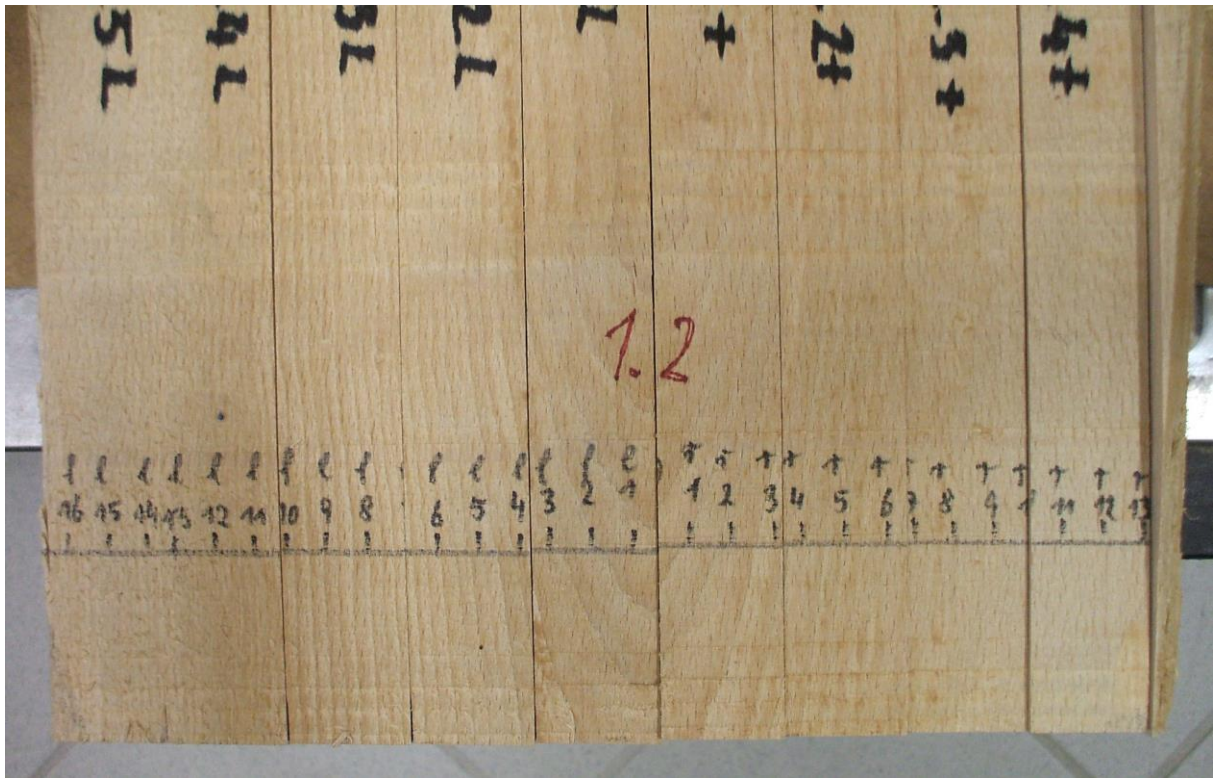 5L 4L 3L 2L + 2+ 3+ 4+
1.2
l l l l l l l l l l l l l l l + + + + + + + + + + + +
16 15 14 13 12 11 10 9 8 6 5 4 3 2 1 1 2 3 4 5 6 7 8 9 11 12 13